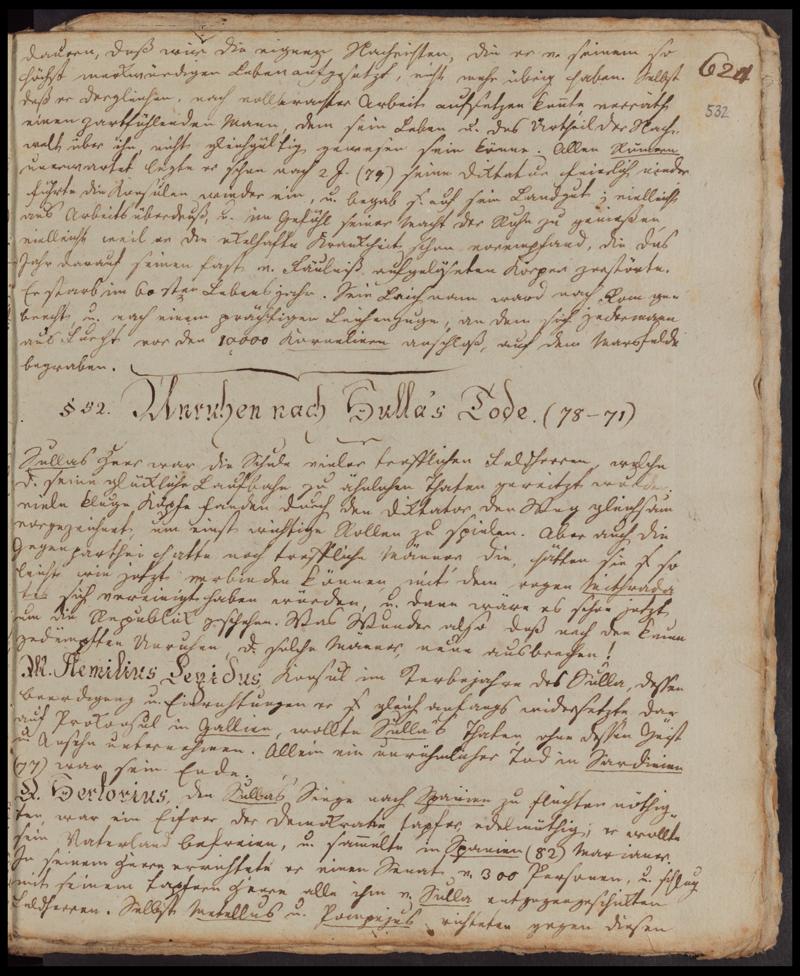 dauern, daß wir die eignen Nachrichten, die er v. seinem so
höchst merkwürdigen Leben aufgesetzt, nicht mehr übrig haben. Selbst
daß er dergleichen, nach vollbrachter Arbeit aufsetzen konnte verräth
einen zartfühlenden Mann, dem sein Leben u. das Urtheil der Nach-
welt über ihn, nicht gleichgültig gewesen sein könne. Allen Römern
unerwartet legte er schon nach 2 J. (79) seine Diktatur feierlich nieder
führte die Konsulen wieder ein, u. begab s. auf sein Landgut; vielleicht
aus Arbeitsüberdruß, u. im Gefühl seiner Macht der Ruhe zu genießen,
vielleicht weil er die ekelhafte Krankheit schon vorempfand, die das
Jahr darauf seinen fast v. Fäulniß aufgelöseten Körper zerstörte.
Er starb im 60sten Lebensjahre. Sein Leichnam ward nach Rom ge-
bracht u. nach einem prächtigen Leichenzuge, an dem sich jedermann
aus Furcht vor den 10,000 Korneliern anschloß, auf dem Marsfelde
begraben.
624
532
§ 52. Unruhen nach Sulla's Tode. (78–71)
Sullas Heer war die Schule vieler trefflichen Feldherren, welche
d. seine glückliche Laufbahn zu ähnlichen Thaten gereitzt wurden.
viele kluge Köpfe fanden durch den Diktator den Weg gleichsam
vorgezeichnet, um einst wichtige Rollen zu spielen. Aber auch die
Gegenparthei hatte noch treffliche Männer die, hätten sie s. so
leicht wie jetzt verbinden können mit dem regen Mithrada
tes sich vereinigt haben würden, u. dann wäre es schon jetzt
um die Republik geschehen. Was Wunder also daß nach den kaum
gedämpften Unruhen, d. solche Männer, neue ausbrachen!
M. Aemilius Lepidus, Konsul im Sterbejahre des Sulla, dessen
Beerdigung u. Einrichtungen er s. gleich anfangs widersetzte dar
auf Prokonsul in Gallien, wollte Sulla's Thaten ohne dessen Geist
u. Ansehn unternehmen. Allein ein unrühmlicher Tod in Sardinien
(77) war sein Ende.
Q. Sertorius, den Sullas Siege nach Spanien zu flüchten nöthig-
ten, war ein Eifrer der Demokratie tapfer, edelmüthig; er wollte
sein Vaterland befreien, u. sammelte in Spanien (82) Marianer.
In seinem Heere errichtete er einen Senat v. 300 Personen, u. schlug
mit seinem tapfern Heere alle ihm v. Sulla entgegengeschickten
Feldherren. Selbst Metellus u. Pompejus richteten gegen diesen